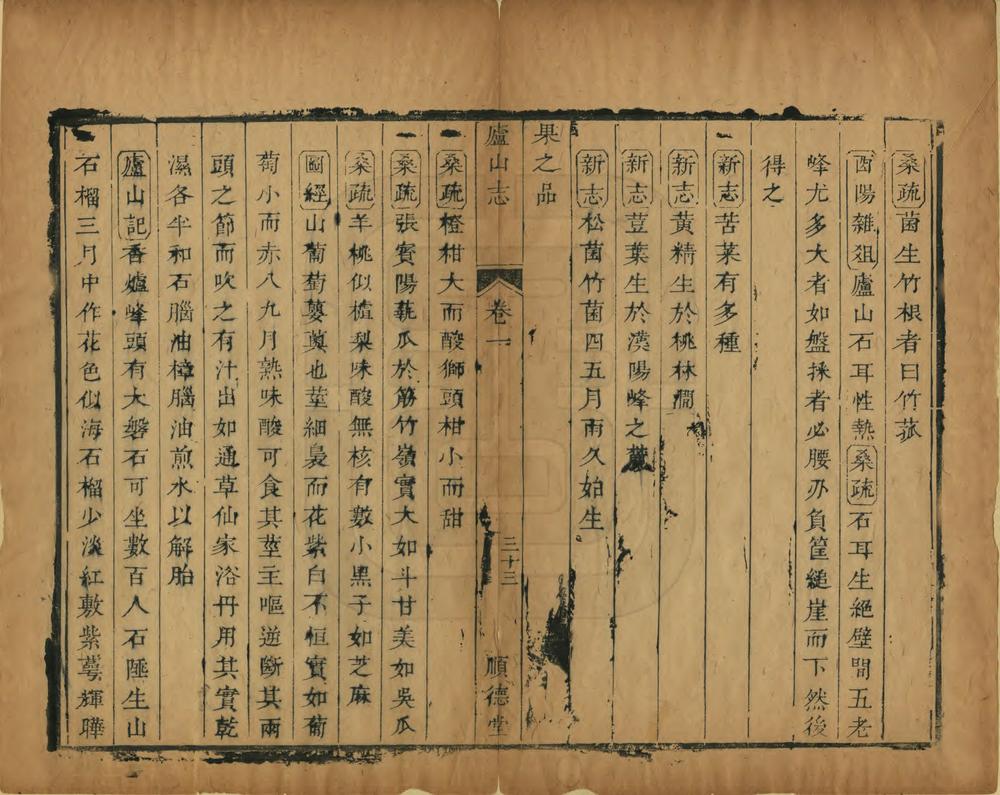 桑疏菌生竹根者曰竹菰
酉陽雜俎廬山石耳性熱桑疏石耳生絕壁間五老
峰尤多大者如盤採者必腰刅負筐縋崖而下然後
得之
新志苦菜有多種
新志黃精生於桃林澗
新志荳葉生於漢陽峰之麓
新志松菌竹菌四五月雨久始生
果之品
廬山志 卷一 三十三 順德堂
桑疏橙柑大而酸獅頭柑小而甜
桑疏張賓陽蓺瓜於筋竹嶺實大如斗甘美如吳瓜
桑疏羊桃似樝梨味酸無核有數小黑子如芝麻
圖經山葡萄蘡薁也莖細裊而花紫白不恒實如葡
萄小而赤八九月熟味酸可食其莖主嘔逆斷其兩
頭之節而吹之有汁出如通草仙家浴丹用其實乾
濕各半和石腦油樟腦油煎水以解胎
廬山記香爐峰頭有大磐石可坐數百人石陲生山
石榴三月中作花色似海石榴少淡紅敷紫蕚輝曄